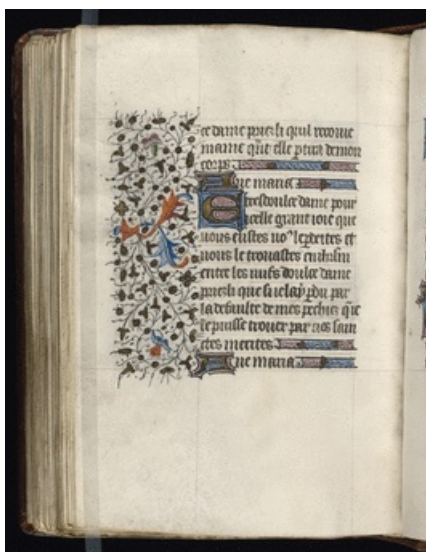 ce dame priez li quil recoiue
mame qñt elle ptira demon
corps
Aue maria
Etresdoulce dame pour
icelle grant ioie que
vous eustes perdites et
vous le trouastes
entre les iuifs doulce dame
priez li que se ie lay pdu par
la defaulte de mes pechiez que
le puisse trouer par tes sain
ctes merites
Aue maria